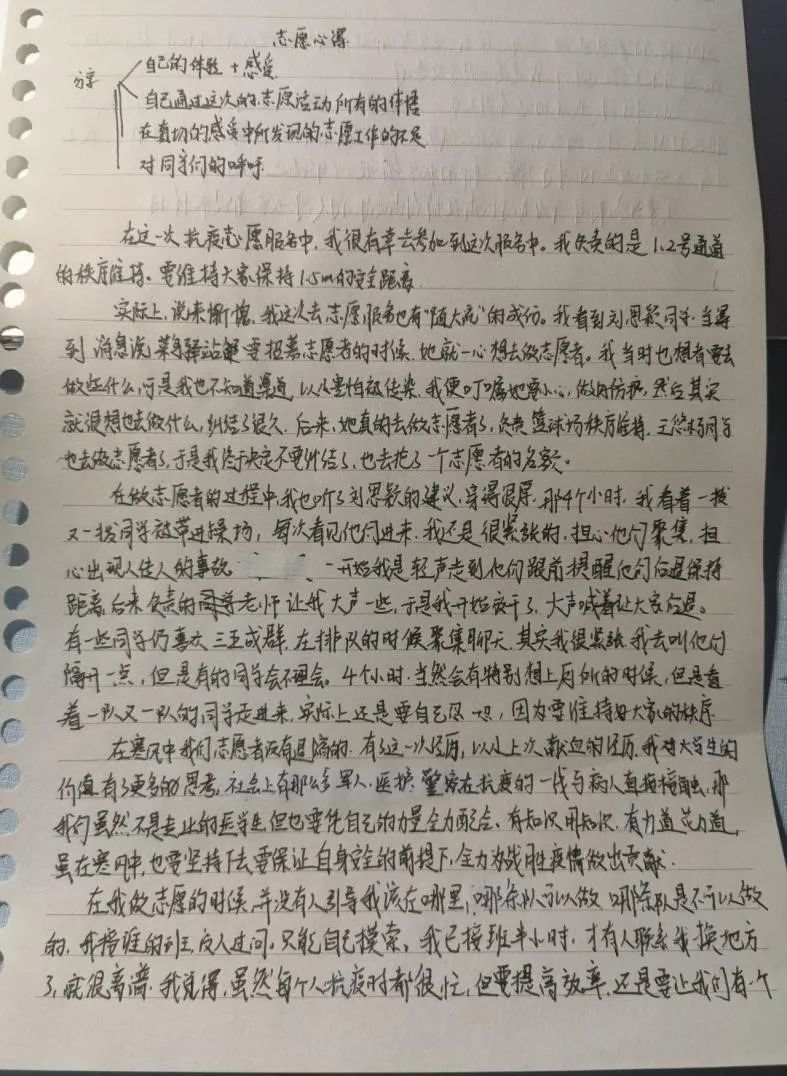 志愿心得
分享
自己的体验 + 感受
自己通过这次的志愿活动所有的体悟
在真切的感受中所发现的志愿工作的不足
对同学们的呼吁
在这一次抗疫志愿服务中,我很有幸去参加到这次服务中。我负责的是1.2号通道
的秩序维持。要维持大家保持1.5m的安全距离.
实际上,说来惭愧,我这次去志愿服务也有“随大流”的成份。我看到刘思毅同学当得
到消息说菜鸟驿站 要招募志愿者的时候,她就一心想去做志愿者。我当时也想着要去
做些什么,可是我也不知道渠道,以及害怕被传染,我便叮嘱她要小心,做好防疫,然后其实
就很想也去做什么,纠结了很久.后来,她真的去做志愿者了,负责篮球场秩序维持,王悠杨同学
也去做志愿者了,于是我终于决定不要纠结了,也去抢了一个志愿者的名额。
在做志愿者的过程中,我也听了刘思毅的建议,穿得很厚.那4个小时,我看着一拨
又一拨同学被带进操场,每次看见他们进来,我还是很紧张的,担心他们聚集,担
心出现人传人的事故. 一开始我是轻声走到他们跟前提醒他们后退保持
距离,后来负责的 老师让我大声一些,于是我开始放开了,大声喊着让大家后退。
有一些同学仍喜欢三五成群,在排队的时候聚集聊天,其实我很紧张,我去叫他们
隔开一点,但是有的同学会不理会。4个小时,当然会有特别想上厕所的时候,但是看
着一队又一队的同学走进来,实际上还是要自己忍一忍,因为要维持好大家的秩序.
在寒风中我们志愿者没有退缩的.有了这一次经历,以及上次献血的经历,我对大学生的
价值有了更多的思考,社会上有那么多军人、医护、警察在抗疫的一线与病人直接接触,那
我们虽然不是专业的医学生但也要凭自己的力量全力配合、有知识用知识,有力道花力道,
虽在寒风中,也要坚持下去要保证自身安全的前提下,全力为战胜疫情做出贡献.
在我做志愿的时候,并没有人引导我该在哪里,哪条队可以做,哪条队是不可以做
的,我接谁的班,没人过问,只能自己摸索,我已接班半小时,才有人联系我换地方
了,就很离谱.我觉得,虽然每个人抗疫时都很忙,但要提高效率,还是要让我们有一个